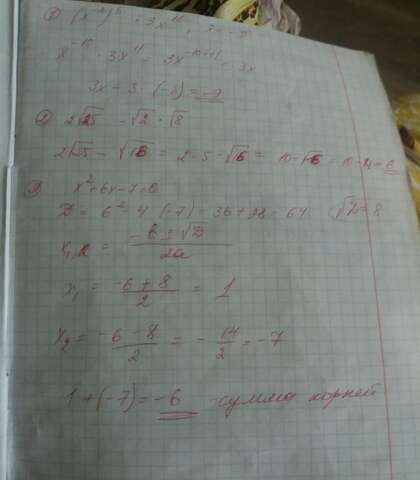 x⁻¹⁰ · 3x¹¹ = 3x⁻¹⁰⁺¹¹ = 3x
2) 2√25 - √2 · √8
2√25 - √16 = 2 · 5 - √16 = 10 - √16 = 10 - 4 = 6
3) x² + 6x - 7 = 0
D = 6² - 4 · (-7) = 36 + 28 = 64 √D = 8
x₁,₂ = (-6 ± √D) / 2a
x₁ = (-6 + 8) / 2 = 1
x₂ = (-6 - 8) / 2 = - 14/2 = -7
1 + (-7) = -6 сумма корней